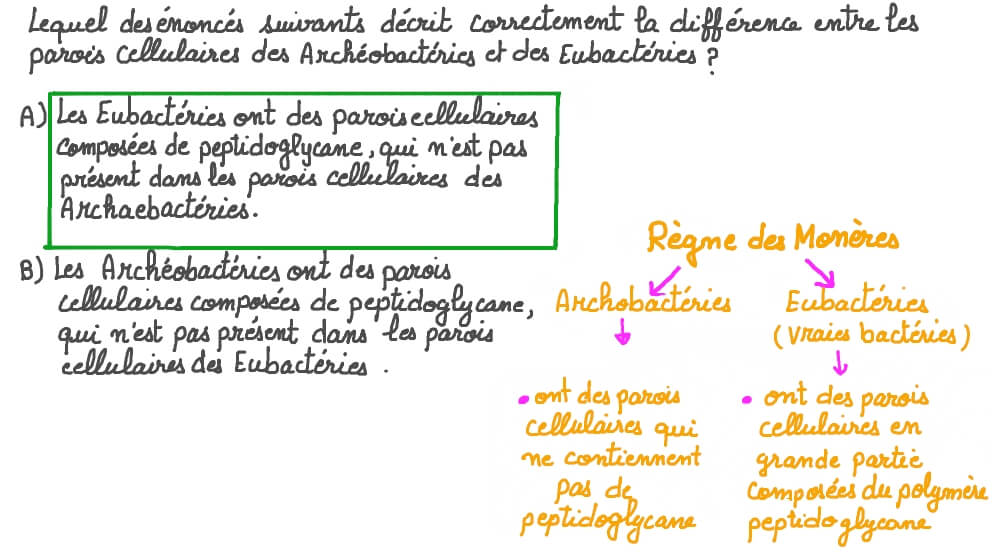 Lequel des énoncés suivants décrit correctement la différence entre les
parois cellulaires des Archéobactéries et des Eubactéries ?
A) Les Eubactéries ont des parois cellulaires
composées de peptidoglycane, qui n'est pas
présent dans les parois cellulaires des
Archaebactéries.
B) Les Archéobactéries ont des parois
cellulaires composées de peptidoglycane,
qui n'est pas présent dans les parois
cellulaires des Eubactéries.
Règne des Monères
Archobactéries
• ont des parois
cellulaires qui
ne contiennent
pas de
peptidoglycane
Eubactéries
(vraies bactéries)
• ont des parois
cellulaires en
grande partie
composées du polymère
peptidoglycane